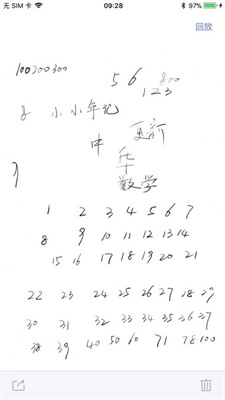 无 SIM 卡 09:28 57%
回放
100200300
5 6 800
123
小小年记
更新
中
华
数学
1 2 3 4 5 6 7
8 9 10 11 12 13 14
15 16 17 18 19 20 21
22 23 24 25 26 27 28 29
30 31 32 33 34 35 36 37
38 39 40 50 60 71 78 100